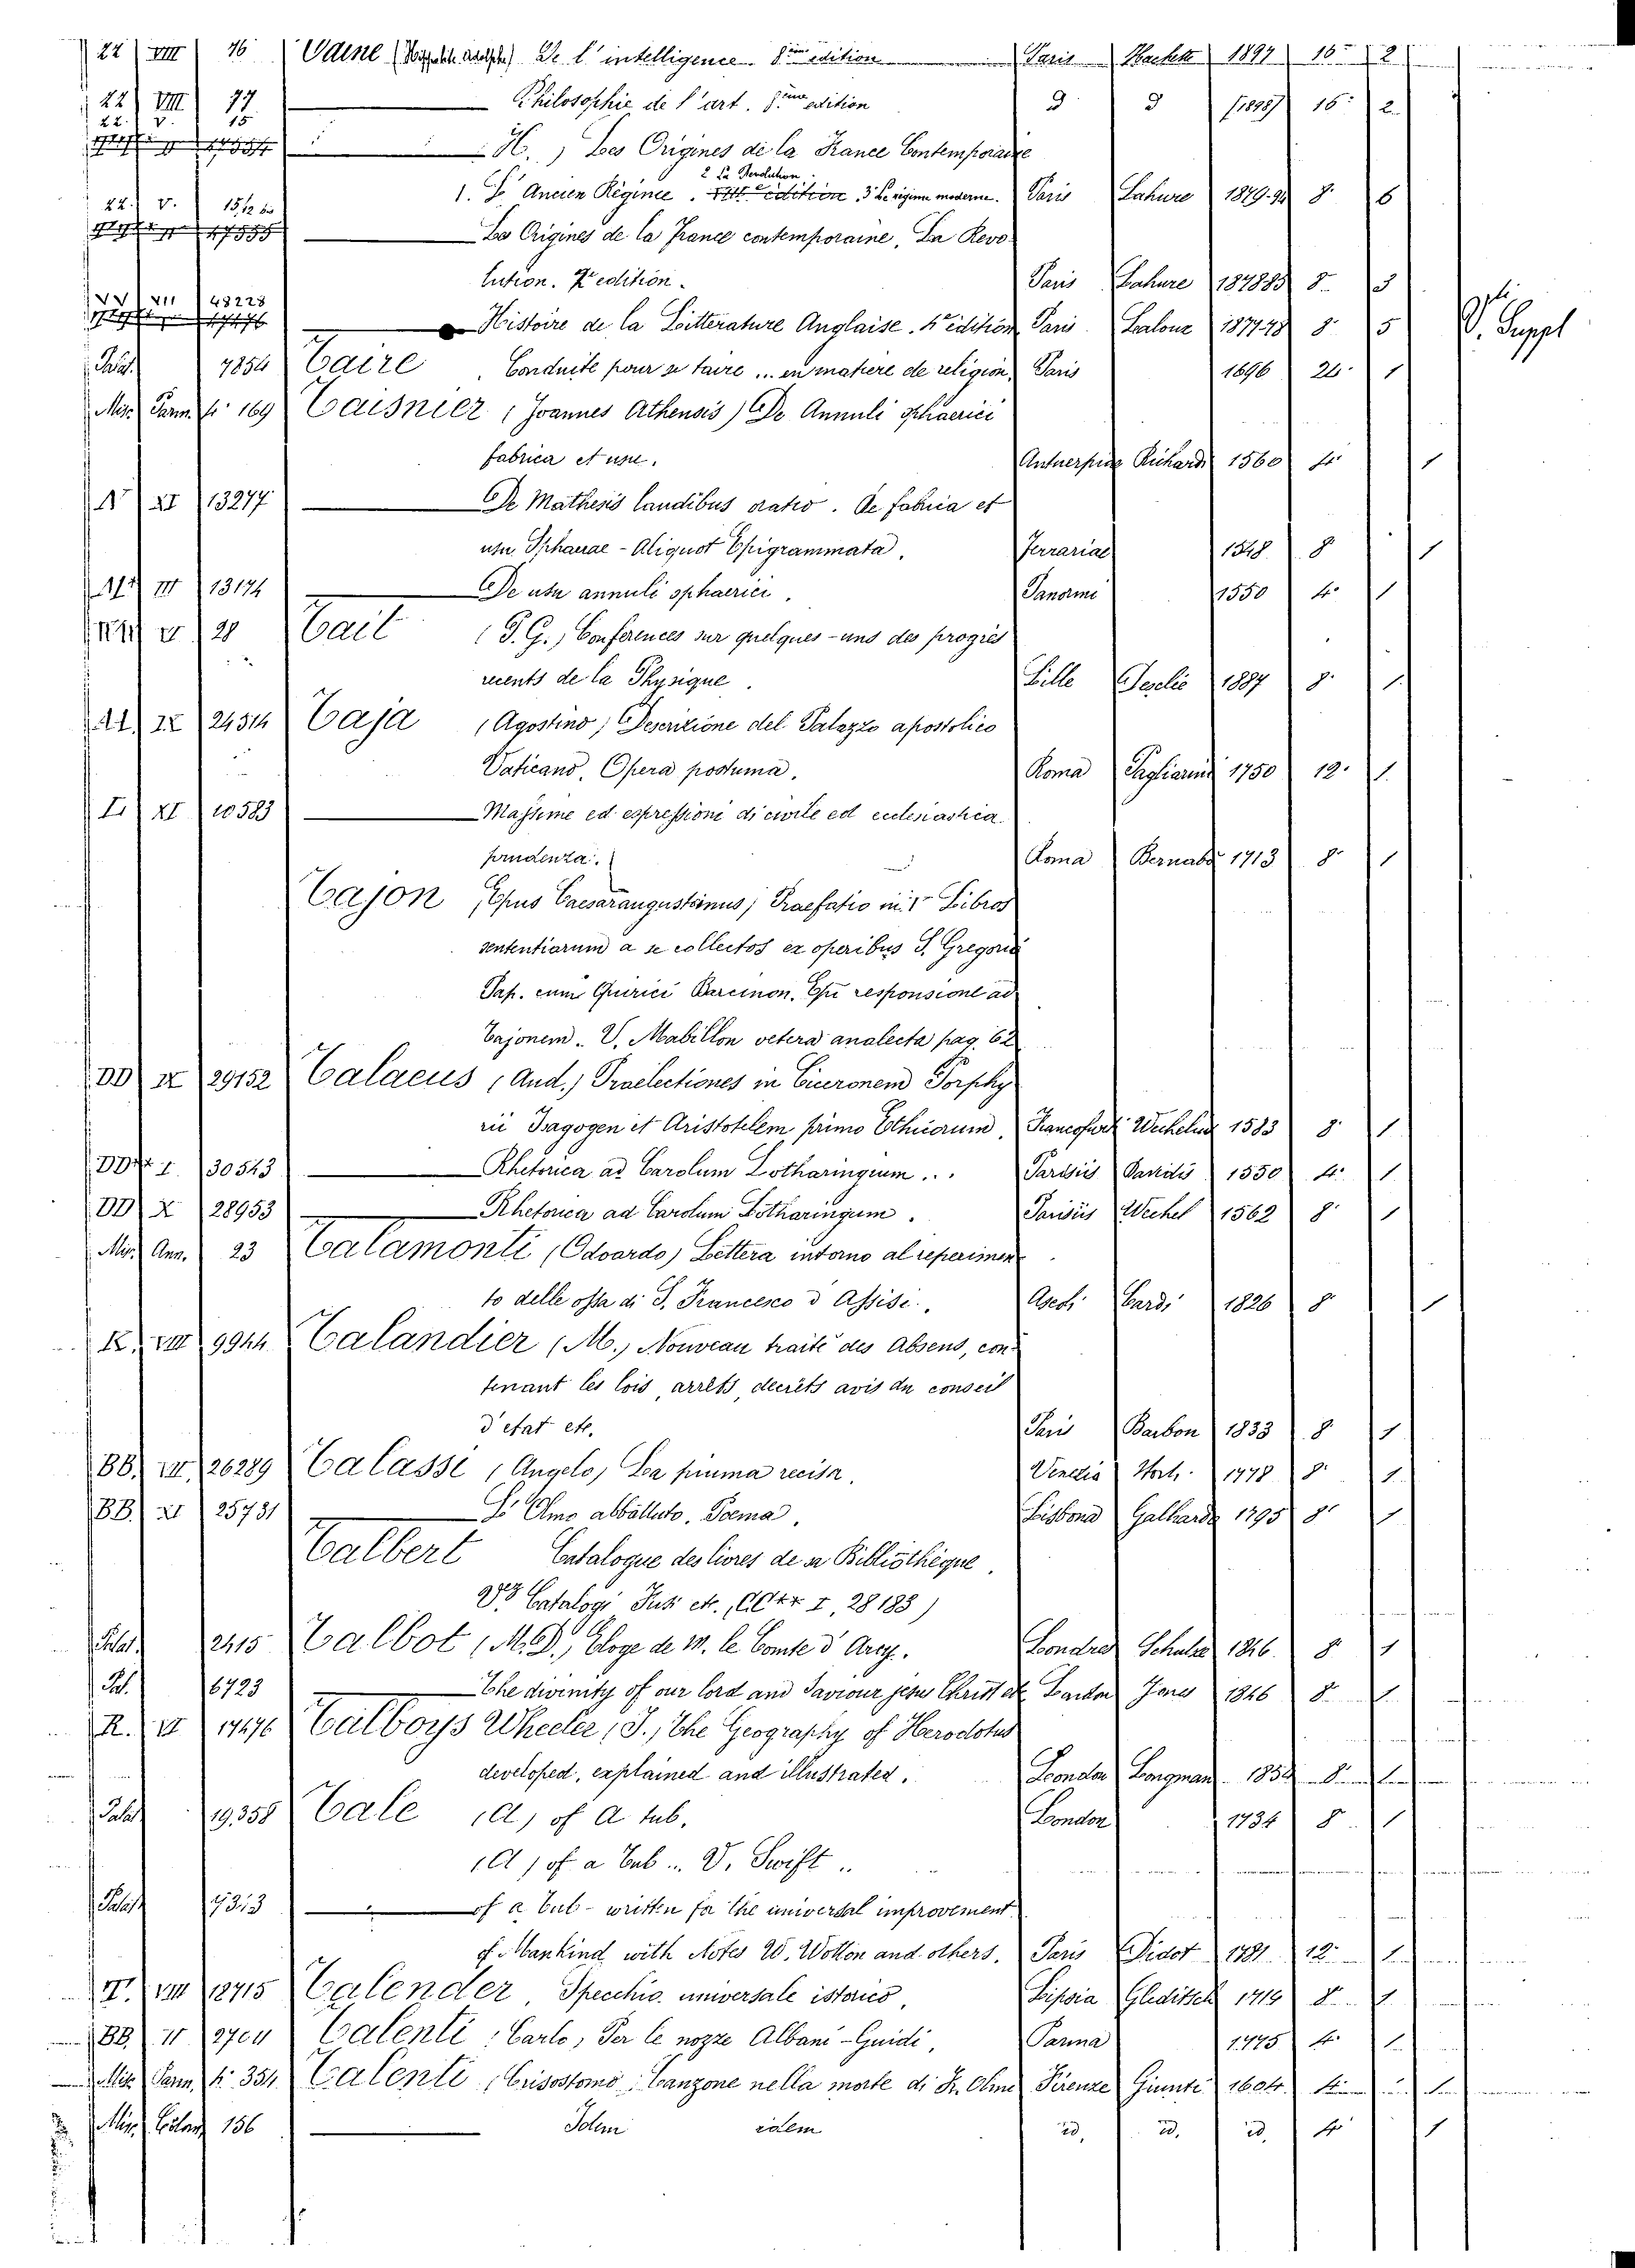 22 VIII 76 Taine De l'intelligence. 8ème edition Paris Hachette 1897 16° 2
22 VIII 77 Philosophie de l'art. 8ème edition 16° 2
22. V. 15
H.) Les Origines de la France Contemporaine
2 La Revolution
22. V. 15/2 bis 1. L'Ancien Régime. edition, 3 Le régime moderne. Paris Lahure 8° 6
Les Origines de la France contemporaine, La Revo
lution. edition. Paris Lahure 8° 3
VII 48228
Histoire de la Litterature Anglaise. 4e edition Paris 1877-78 8° 5 V. Suppl
Palat. 7854 Taire Conduite pour se taire... en matiere de religion, Paris 1696 24° 1
Mis. Parm. fo 169 Taisnier (Joannes Athensis) De Annuli sphaerici
fabrica et usu. Antuerpiae Richardi 1560 4° 1
XI 13277 De Mathesis laudibus oratio. De fabrica et
usu Sphaerae - Aliquot Epigrammata. Ferrariae 1548 8° 1
III 13174 De usu annuli sphaerici. Panormi 1550 4° 1
V 28 Tait (P. G.) Conferences sur quelques-uns des progrès
recents de la Physique. Lille 1887 8° 1
IX 24314 Taja (Agostino) Descrizione del Palazzo apostolico
Vaticano, Opera postuma. Roma Pagliarini 1750 12° 1
I XI 10583 Massime ed espressioni di civile ed ecclesiastica
prudenza. Roma Bernabò 1713 8° 1
Tajon Epus Caesaraugustanus, Praefatio in 5 Libros
sententiarum a se collectos ex operibus S. Gregorii
Pap. cum Quirici Barcinon. Epi responsione ad
Tajonem. V. Mabillon vetera analecta pag. 62
DD IX 29152 Talaeus (Aud.) Praelectiones in Ciceronem Porphy
rii Isagogen et Aristotelem primo Ethicorum, Francofurt Wechelus 1583 8° 1
DD** I. 30543 Rhetorica ad Carolum Lotharingium... Parisiis Davidis 1550 4° 1
DD X 28953 Rhetorica ad Carolum Lotharingium. Parisiis Wechel 1562 8° 1
Mis. Ann. 23 Talamonti (Odoardo) Lettera intorno al reperimen
to delle ossa di S. Francesco d'Assisi. Ascoli Cardi 1826 8° 1
R. VIII 9944 Talandier (M.) Nouveau traité des Absens, con
tenant les lois, arrets, decrets avis du conseil
d'etat etc. Paris Barbon 1833 8° 1
BB. VII 26289 Talassi (Angelo) La piuma recisa. Venezia 1778 8° 1
BB. XI 25731 L'Olmo abbattuto. Poema. Lisbona Galhardo 1795 8° 1
Talbert Catalogue des livres de sa Bibliothéque,
Vs Catalogi Jusi etc. (CC** I, 28183)
Palat. 2415 Talbot (M. D.) Eloge de M. le Comte d'Arcy. Londres Schulze 1846. 8° 1
Pal. 6723 The divinity of our lord and Saviour jesus Christ etc London Jones 1846 8° 1
R. VI 17476 Talboys Wheeler (J.) The Geography of Herodotus
developed, explained and illustrated. London Longman 1854 8° 1
Palat 19.358 Tale (A) of A tub. London 1734 8° 1
(A) of a Tub... V. Swift..
Palat 7313 of a Tub - written for the universal improvement
of Mankind with Notes W. Wotton and others. Paris Didot 1781 12° 1
T. VIII 18715 Talender, Specchio universale istorico, Lipsia Gleditsch 1714 8° 1
BB. II 2704 Talenti (Carlo, Per le nozze Albani-Guidi, Parma 1775 4° 1
Mis. Parm. fo 351 Talenti (Crisostomo, Canzone nella morte di Firenze Giunti 1604 4° 1
Mis. 156 Idem idem id. id. id. 4° 1